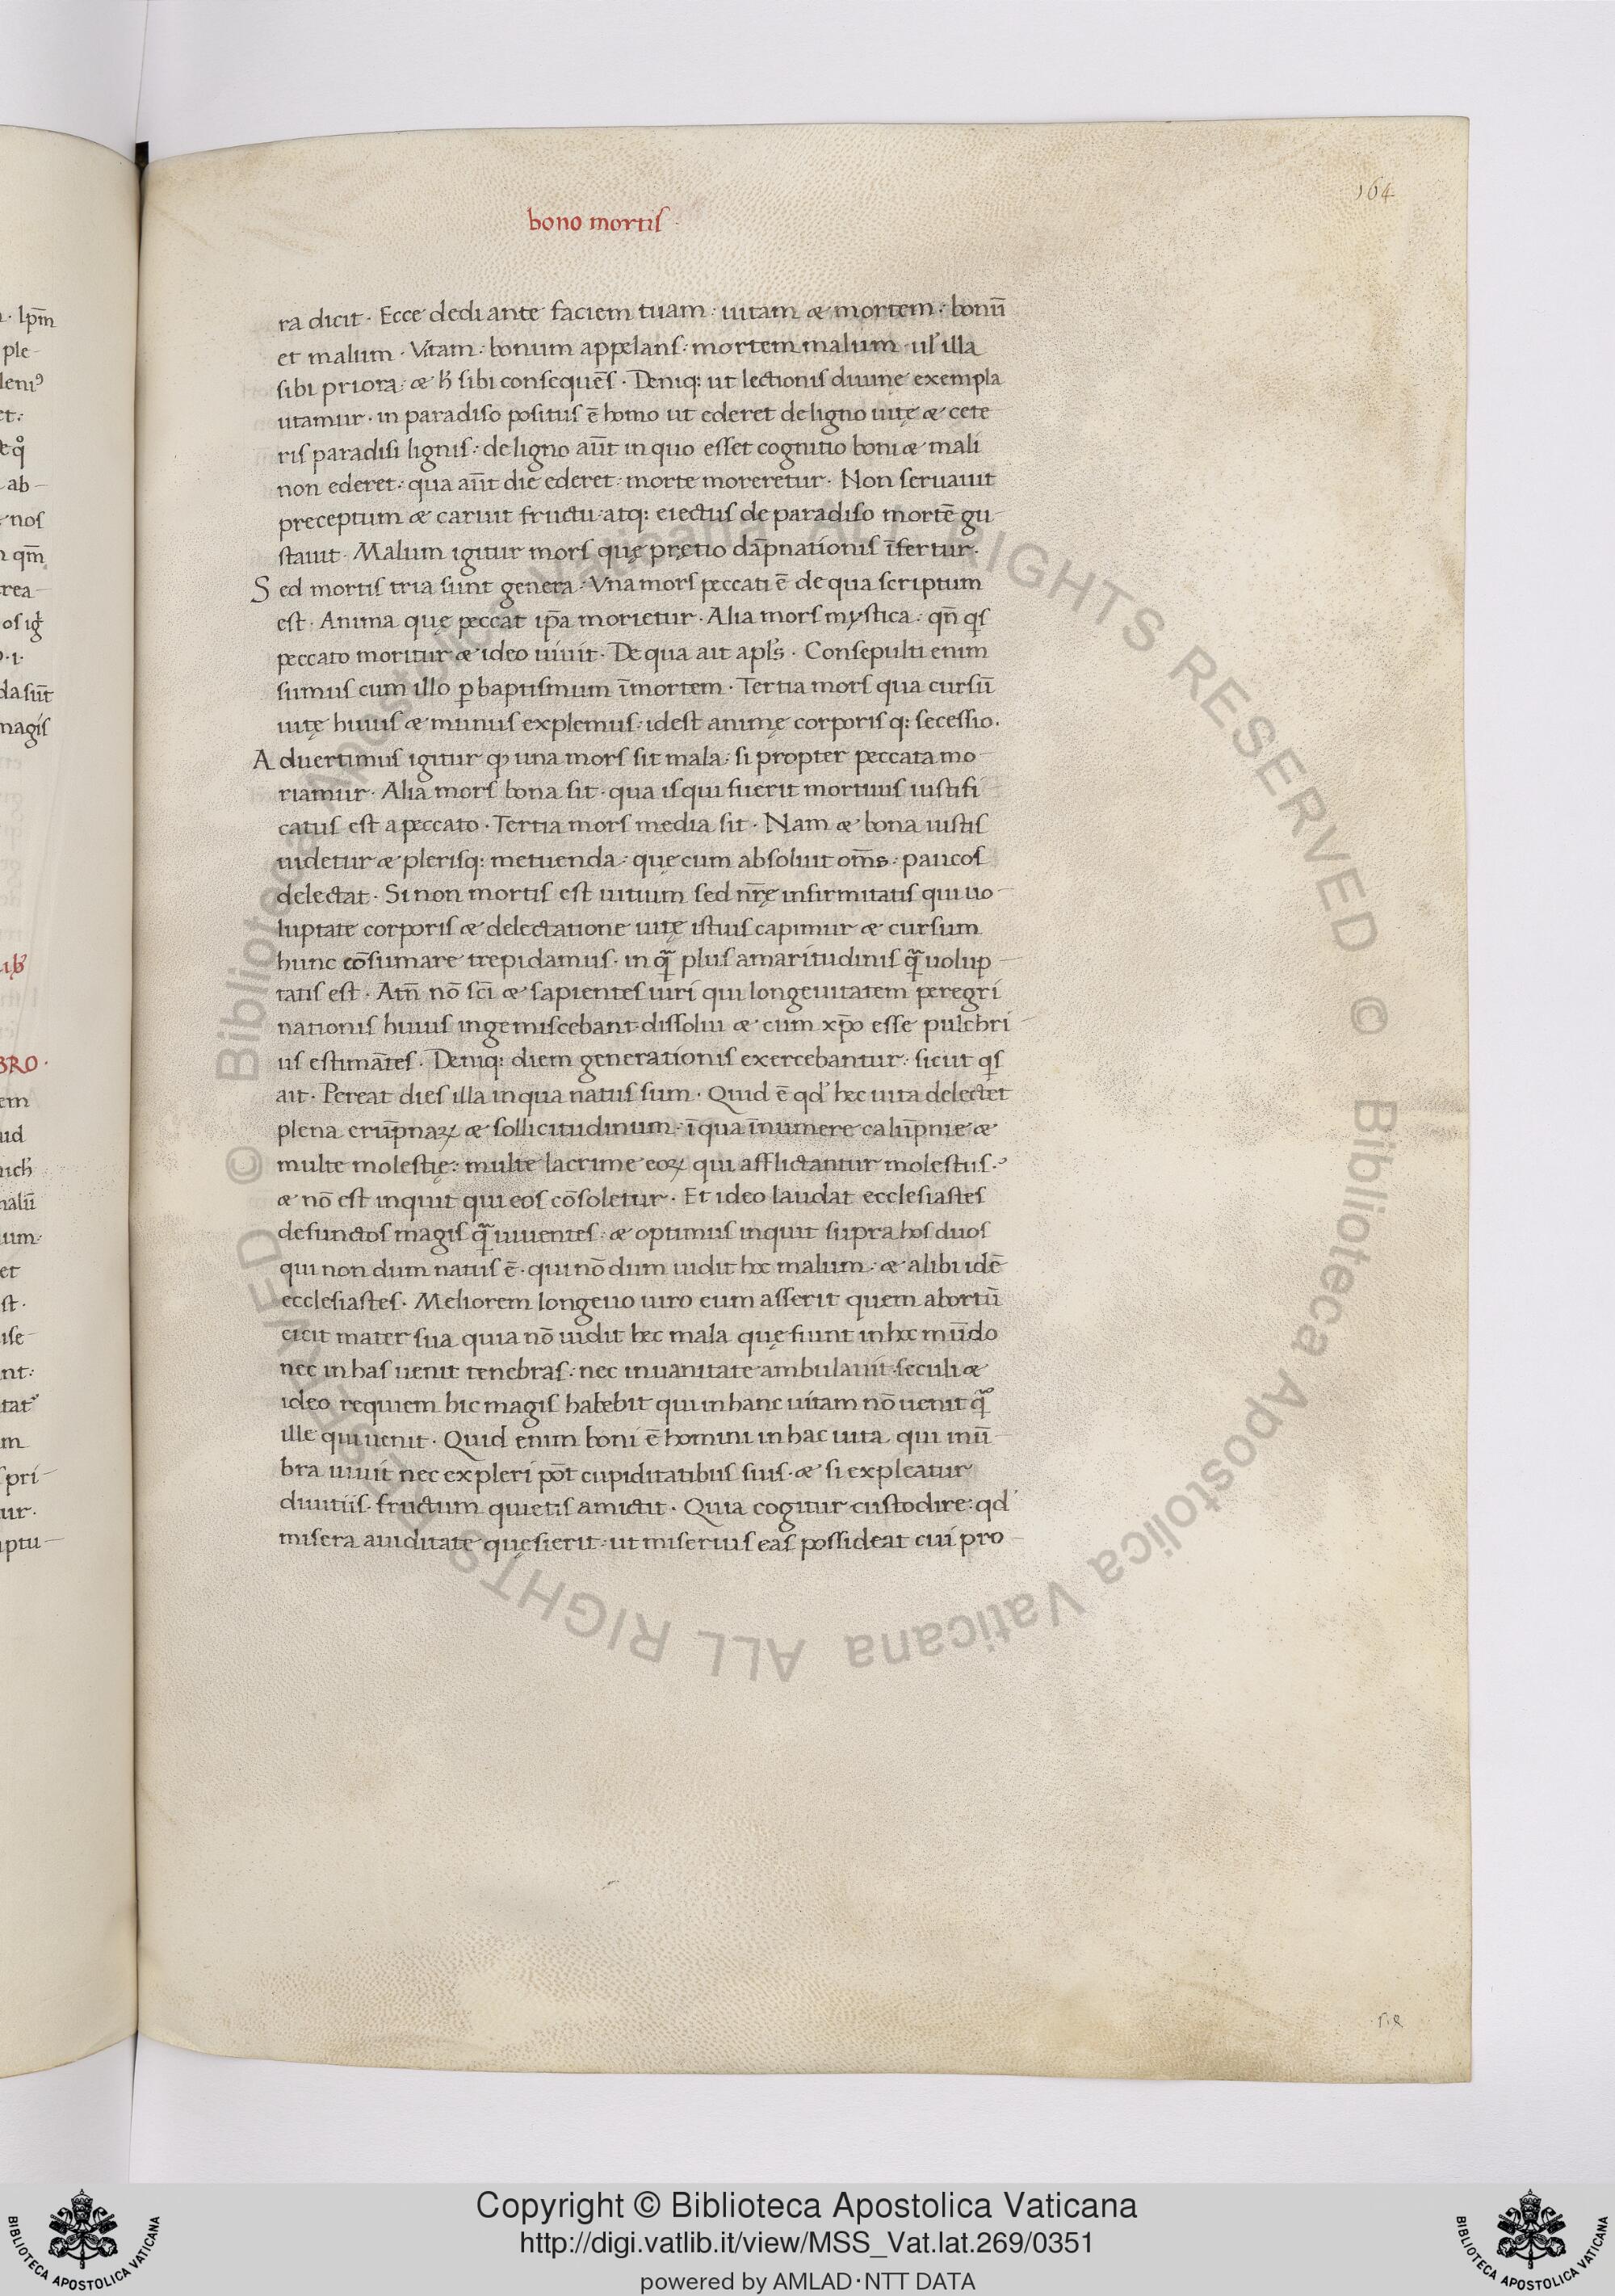 164
bono mortis ·
ra dicit · Ecce dedi ante faciem tuam : uitam æ mortem : bonū
et malum · Vitam : bonum appelans : mortem malum · ul' illa
sibi priora : æ h' sibi consequēs · Deniq; ut lectionis diuinę exempla
utamur · in paradiso positus ē homo ut ederet de ligno uitę æ cete
ris paradisi lignis : de ligno aūt in quo esset cognitio boni æ mali
non ederet : qua aūt die ederet : morte moreretur · Non seruauit
preceptum æ caruit fructu · atq; eiectus de paradiso mortē gu
stauit · Malum igitur mors quę prętio dāpnationis īfertur ·
Sed mortis tria sunt genera : Vna mors peccati ē de qua scriptum
est · Anima quę peccat ip̄a morietur · Alia mors mystica : qn̄ qs
peccato moritur æ ideo uiuit · De qua ait apl's · Consepulti enim
sumus cum illo p baptismum ī mortem · Tertia mors qua cursū
uitę huius æ munus explemus : idest animę corporis q; secessio ·
Aduertimus igitur ꝙ una mors sit mala : si propter peccata mo
riamur · Alia mors bona sit · qua is qui fuerit mortuus iustifi
catus est a peccato · Tertia mors media sit · Nam æ bona iustis
uidetur æ plerisq; metuenda : quę cum absoluit om̄s : paucos
delectat · Si non mortis est uitium sed nr̄ę infirmitatis qui uo
luptate corporis æ delectatione uitę istius capimur æ cursum
hunc cōsumare trepidamus · in q̄ plus amaritudinis q̄ uolup
tatis est · Atn̄ nō sc̄i æ sapientes uiri qui longeuitatem peregri
nationis huius ingemiscebant : dissolui æ cum xp̄o esse pulchri
us estimātes · Deniq; diem generationis exercebantur : sicut qs
ait · Pereat dies illa in qua natus sum · Quid ē qd' hec uita delectet
plena erūpnaꝝ æ sollicitudinum · ī qua īnumere calūpnie æ
multe molestię : multe lacrime eoꝝ qui afflictantur molestiis ·
æ nō est inquit qui eos cōsoletur · Et ideo laudat ecclesiastes
defunctos magis q̄ uiuentes : æ optimus inquit supra hos duos
qui non dum natus ē · qui nō dum uidit hoc malum : æ alibi idē
ecclesiastes · Meliorem longeuo uiro eum asserit quem abortū
eicit mater sua quia nō uidit hec mala quę fiunt in hoc mūdo
nec in has uenit tenebras : nec in uanitate ambulauit seculi æ
ideo requiem hic magis habebit qui in hanc uitam nō uenit q̄
ille qui uenit · Quid enim boni ē homini in hac uita qui in ū
bra uiuit nec expleri pōt cupiditatibus suis · æ si expleatur
diuitiis · fructum quietis amictit · Quia cogitur custodire : qd'
misera auiditate quęsierit : ut miserius eas possideat cui pro
Copyright © Biblioteca Apostolica Vaticana
http://digi.vatlib.it/view/MSS_Vat.lat.269/0351
powered by AMLAD·NTT DATA
BIBLIOTECA APOSTOLICA VATICANA
BIBLIOTECA APOSTOLICA VATICANA
© Biblioteca Apostolica Vaticana ALL RIGHTS RESERVED © Biblioteca Apostolica Vaticana ALL RIGHTS RESERVED